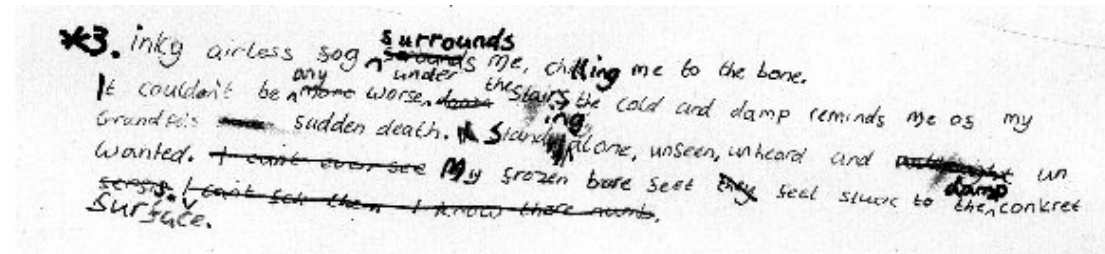 *3. inky airless fog surrounds me, chilling me to the bone.
It couldn't be any worse under the stairs, the cold and damp reminds me of my
Grandfels sudden death. Standing alone, unseen, unheard and un
wanted. I cant even see My frozen bare feet they feel stuck to the damp conkret
I cant feel them I know there numb.
surface.